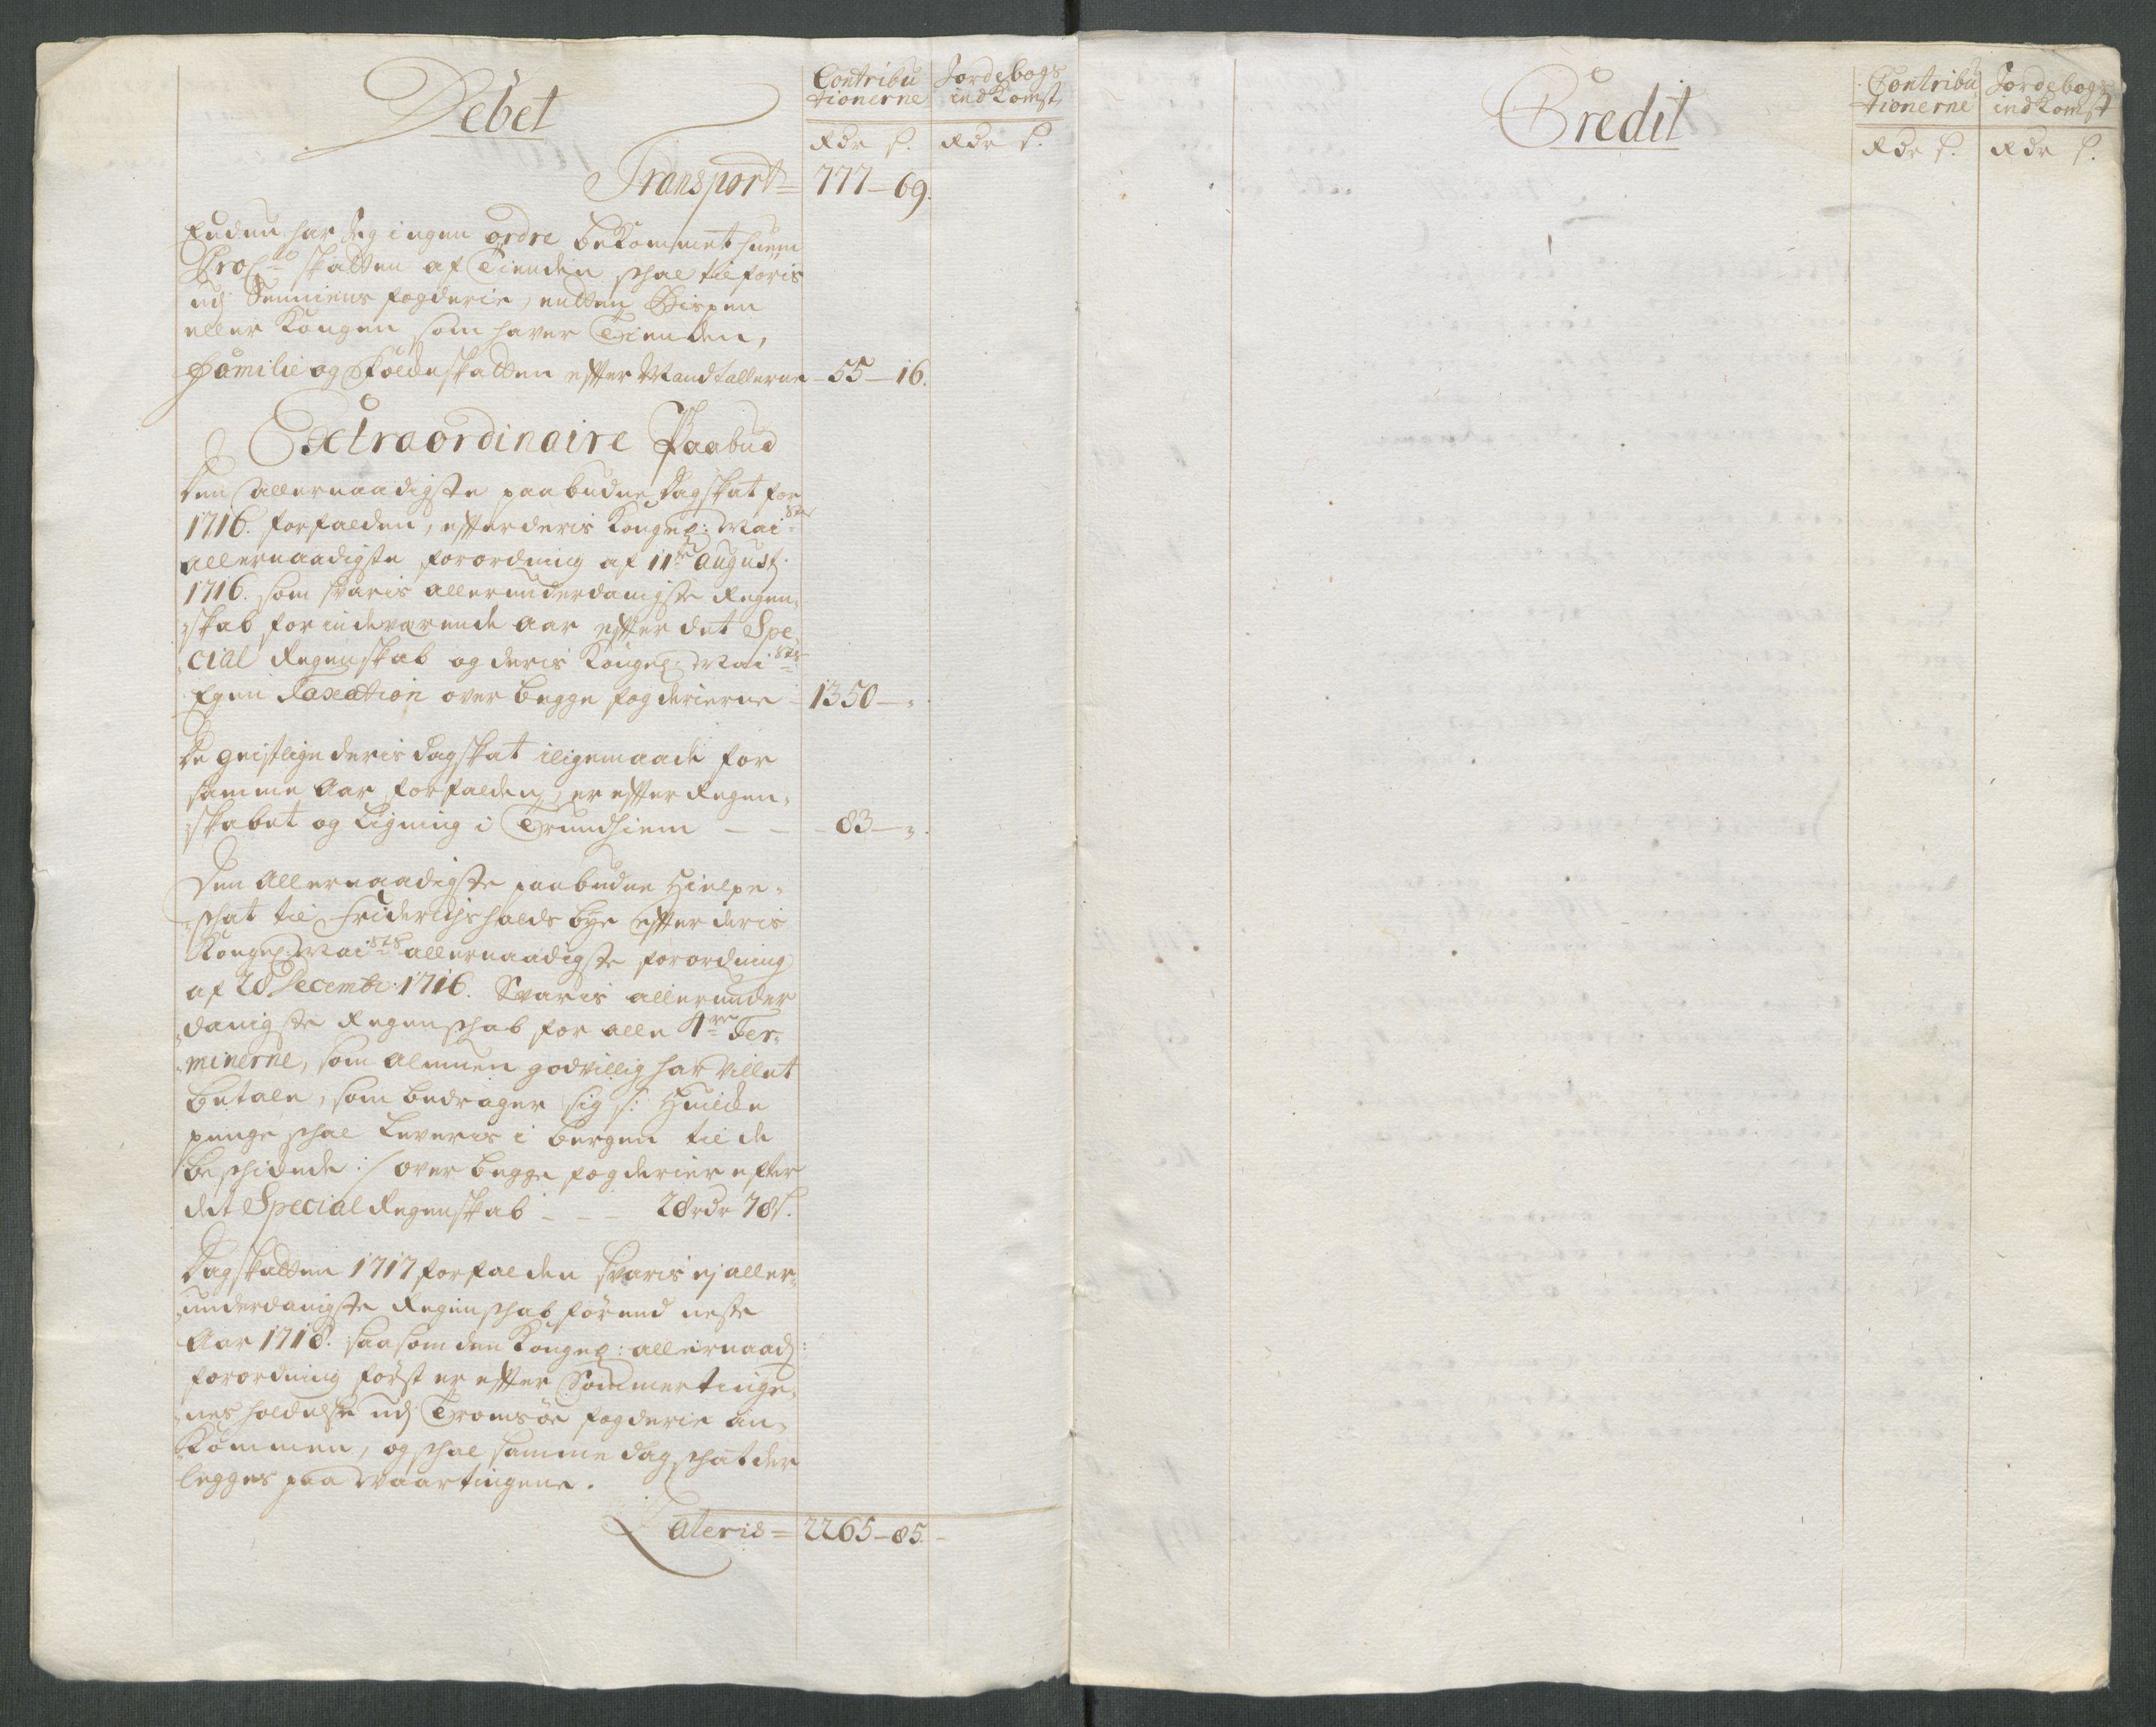 Debet
Contribu Jordebogs
tionerne indkomst
Rdr s. Rdr s.
Transport = 777 – 69.
Endnu har Jeg ingen ordre bekommet huem
ProCto skatten af Tienden schal tilføris
udj Senniens fogderie, endten Bispen
eller Kongen som haver Tienden,
Familie og Foldeskatten effter Mandtallerne – 55 – 16.
Extraordinaire Paabud
Den allernaadigste paabudne dagskat for
1716. forfalden, effter deris Kongel: Maisters
allernaadigste forordning af 11te August
1716. som svaris allerunderdanigste Regen,
,skab for indeværende aar effter det Spe,
,cial Regenskab og deris Kongel. Maists
Egen Taxation over begge fogderierne – 1350 – „
De geistlige deris dagskat iligemaade for
samme Aar forfalden, er effter Regen,
,skabet og Ligning i Trundhiem – – – 83 – „
Den Allernaadigste paabudne Hielpe,
,schat til Friderichshalds bye effter deris
Kongel: Maists allernaadigste forordning
af 28 Decembr: 1716. Svaris allerunder
,danigste Regenschab for alle 4re Ter,
,minerne, som almuen godvillig har villet
betale, som bedrager sig /: Huilcke
penge schal leveris i bergen til de
beschickede :/ over begge fogderier effter
det Special Regenskab – – – 28 rdr 78 s.
Dagskatten 1717 forfalden svaris ej aller,
,underdanigste Regenschab førend neste
Aar 1718. saasom den Kongel: allernaad:
forordning først er effter Sommertinge,
,nes holdelse udj Tromsøe fogderie an,
,kommen, og schal samme dagschat der
legges paa Vaartingene.
Lateris = 2265 – 85 –
Credit
Contribu Jordebogs
tionerne indkomst
Rdr s. Rdr s.